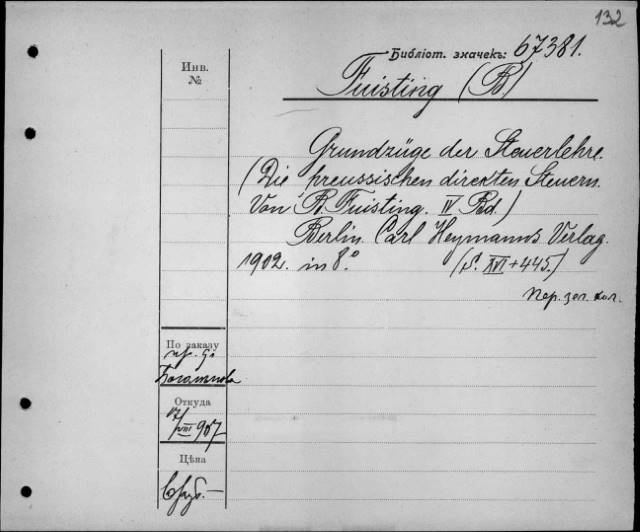 132
Библіот. значекъ: 67381.
Инв.
№
Fuisting (B)
Grundzüge der Steuerlehre.
(Die preussischen direkten Steuern.
Von B. Fuisting. IV Bd.)
Berlin. Carl Heymanns Verlag.
1902. in 8.° (S. XVI+445.)
По заказу
пр. д.
Откуда
17/VIII 907
Цѣна